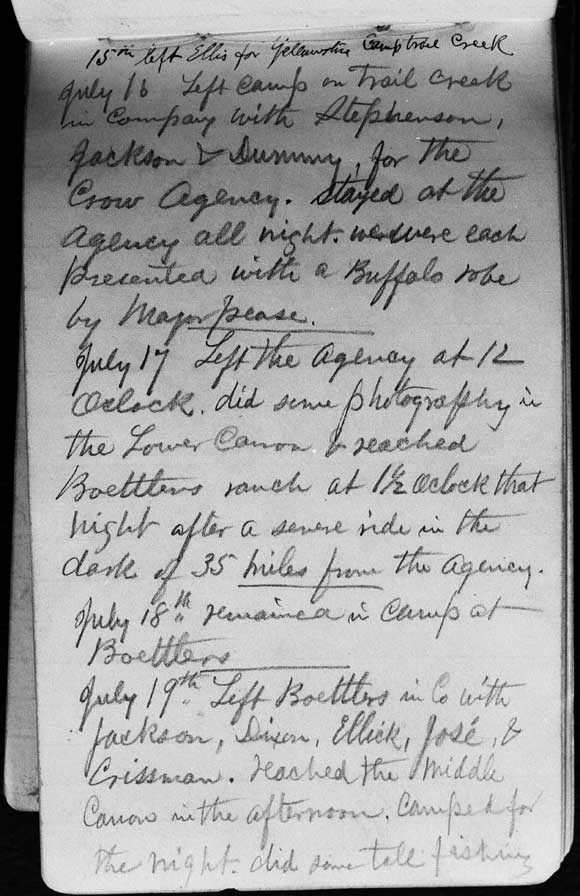 15th left Ellis for Yellowstone Camp trail Creek
July 16 Left camp on Trail Creek
in Company with Stephenson,
Jackson & Dummy, for the
Crow Agency. Stayed at the
Agency all night. were each
Presented with a Buffalo robe
by Major Pease.
July 17 Left the Agency at 12
Oclock. did some photography in
the Lower Canon & reached
Boettlers ranch at 1 1/2 Oclock that
night after a severe ride in the
dark of 35 miles from the Agency.
July 18th remained in Camp at
Boettlers
July 19th Left Boettlers in Co with
Jackson, Dixon, Ellick, José, &
Crissman. reached the Middle
Canon in the afternoon. Camped for
the night. did some tall fishing